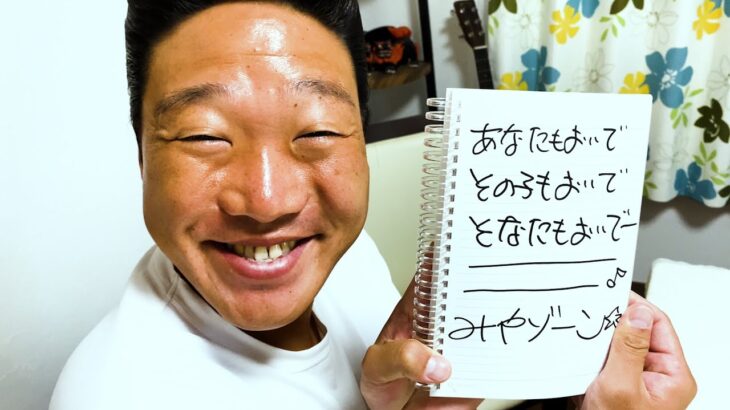 あなたもおいで
そのろもおいで
となたもおいでー
♪
みやゾーン☆